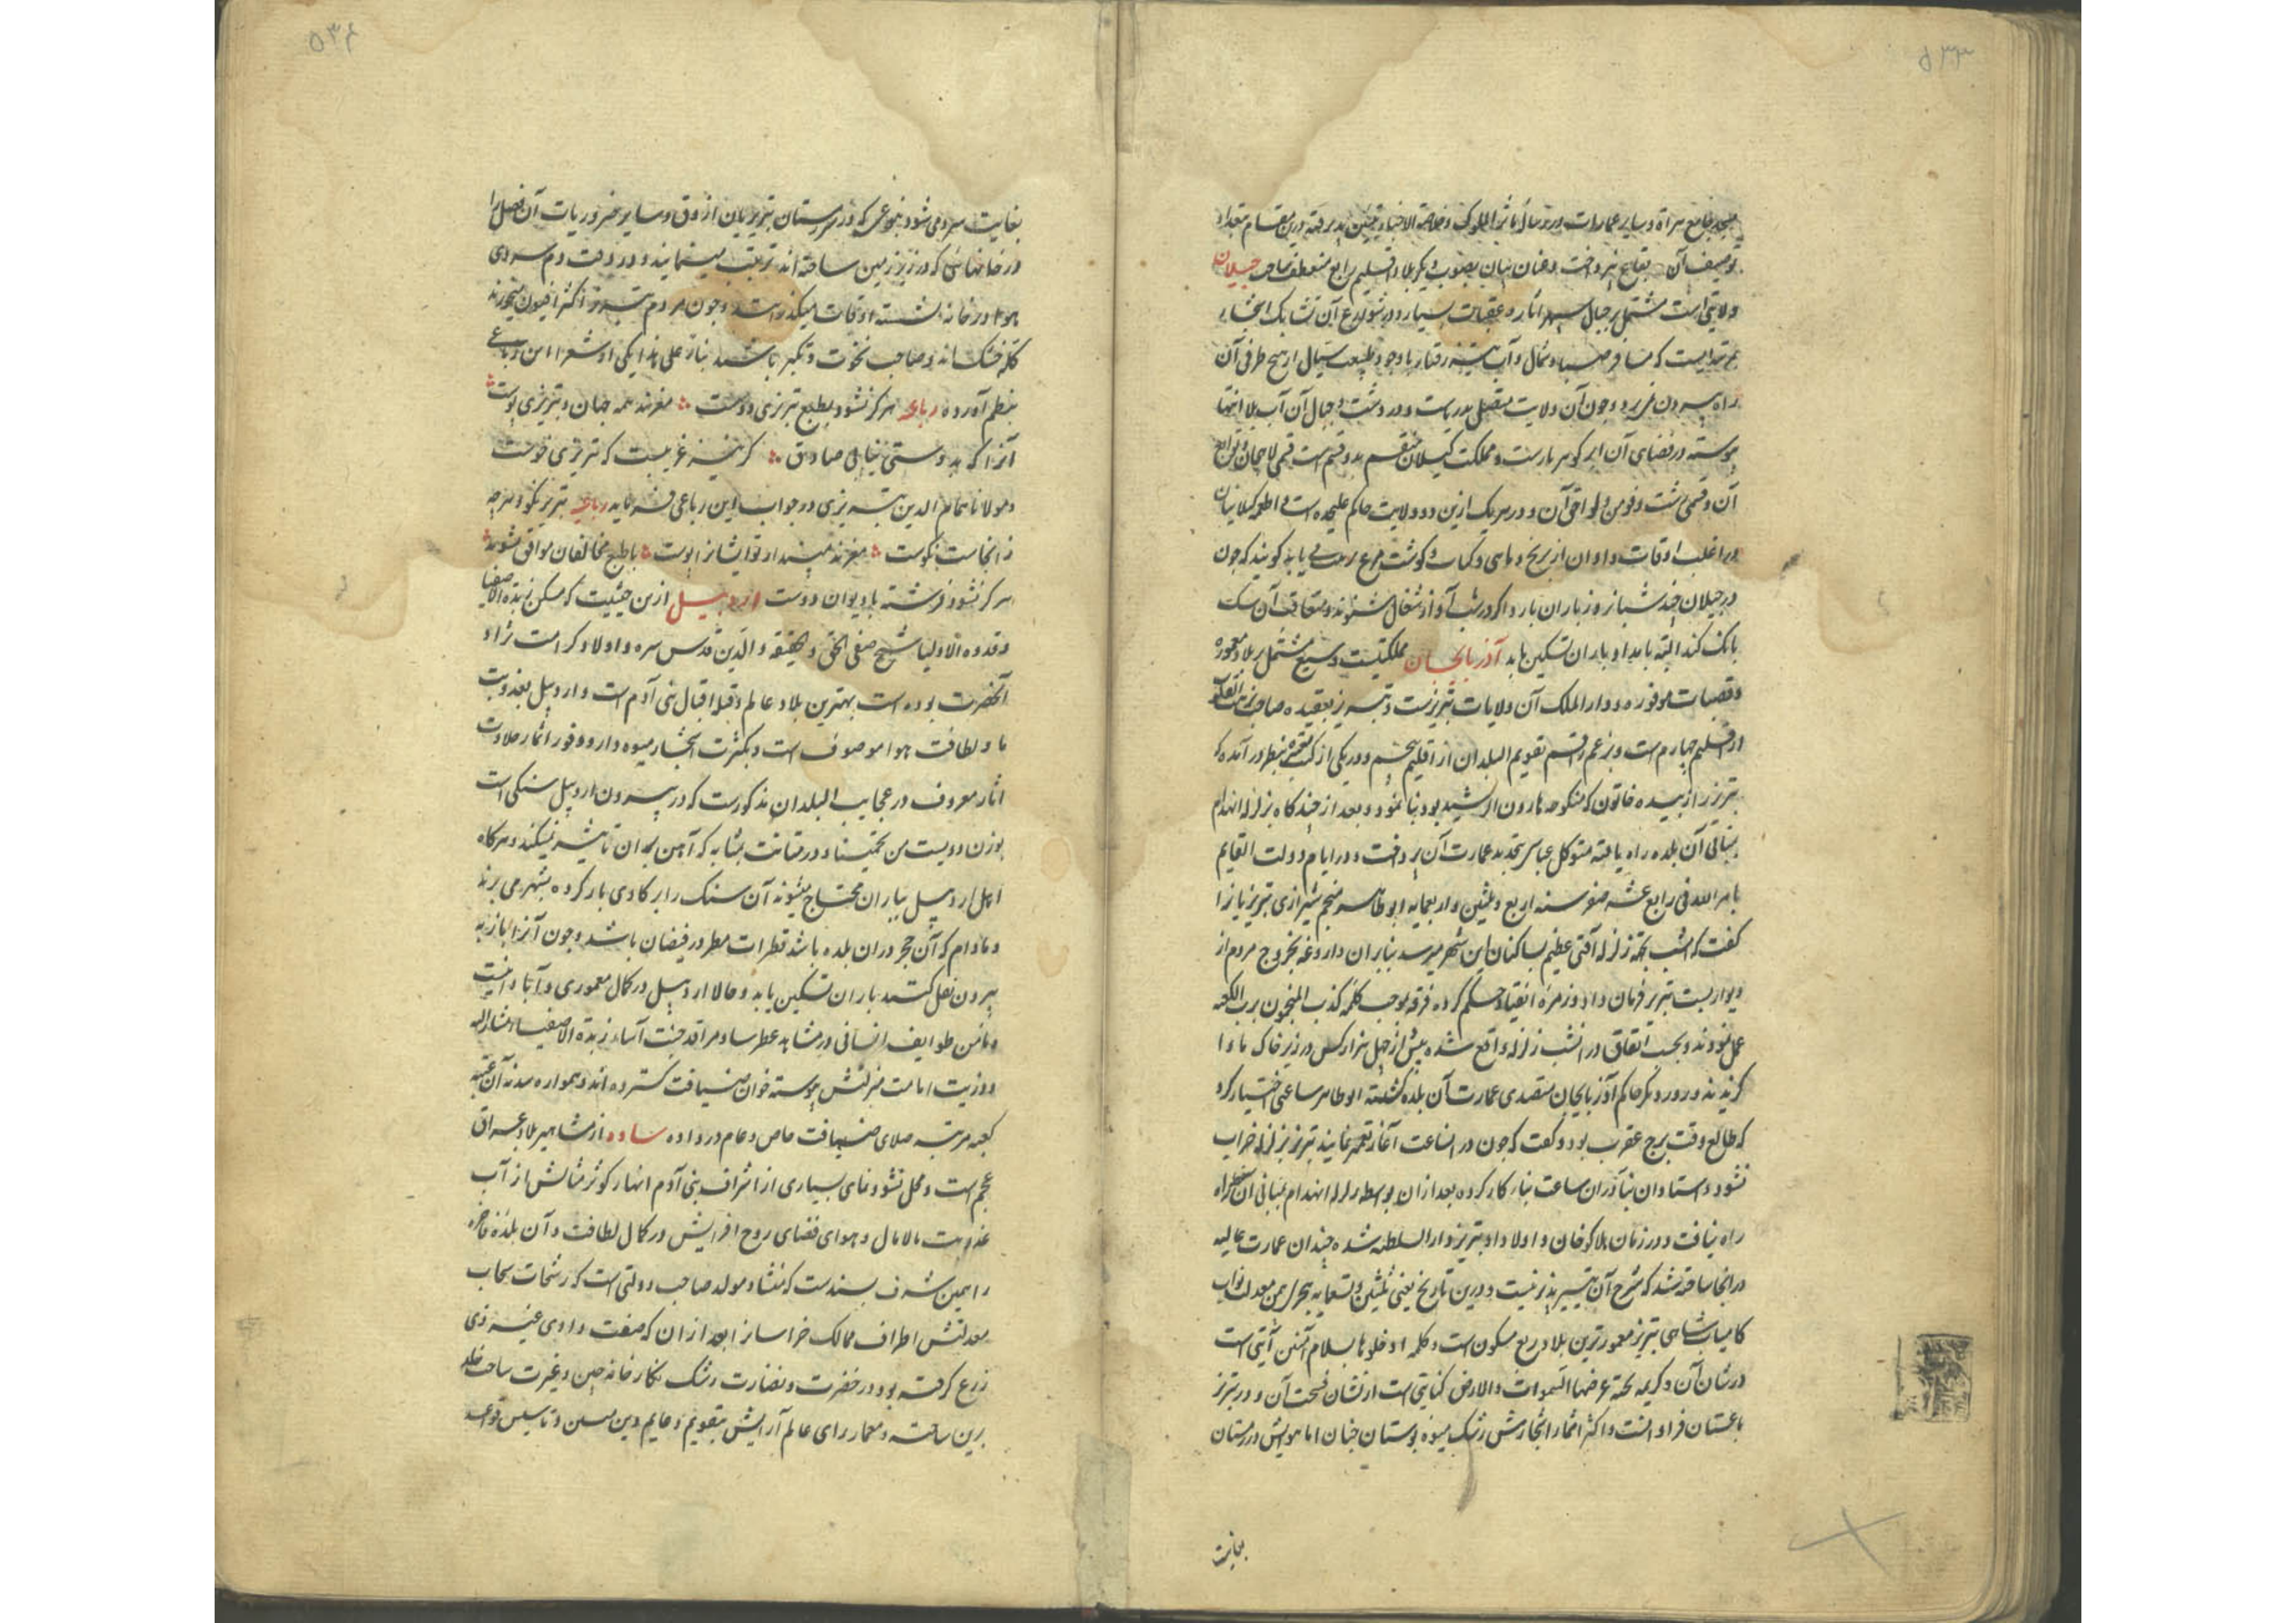 ۵۳۳
مسجد جامع هراة و سایر عمارات در رساله مآثر الملوک و خلاصة الاخبار تبیین پذیرفته درین مقام بتعداد
توصیف آن بقاع نپرداخت و عنان بیان بصوب ذکر بلاد اقلیم رابع منعطف ساخت جیلان
ولایتی است مشتمل بر جبال سپهر آثار و عقبات بسیار و در شوارع آن تشابک اشجار
بمرتبه‌ایست که مسافر صبا و شمال و آب تیز رفتار با وجود طبیعت سیال از هیچ طرفی آن
راه بیرون نمی‌برد و چون آن ولایت متصل بدریاست و در دشت و جبال آن آب بلا انتها
پیوسته در فضای آن ابر گوهربارست و مملکت گیلان منقسم بدو قسم است قسمی لاهجان و توابع
آن و قسمی رشت و فومن و لواحق آن و در هر یک ازین دو ولایت حاکم علیحده است و اطعمه گیلانیان
در اغلب اوقات و اوان از برنج و ماهی و گوشت مرغ می یابد گویند که چون
در جیلان چند شبانه‌روز باران بارد اگر در شب آواز شغال شنوند و متعاقب آن سک
بانک کند البته بامداد باران تسکین یابد آذربایجان مملکتیست وسیع مشتمل بر بلاد معموره
و قصبات موفوره و دار الملک آن ولایات تبریزست و تبریز بعقیده صاحب نزهت القلوب
از اقلیم چهارم است و بزعم راقم تقویم البلدان از اقلیم پنجم و در یکی از کتب معتبره بنظر درآمده که
تبریز را زبیده خاتون که منکوحه هارون الرشید بود بنا نمود و بعد از چندگاه بزلزله انهدام
ببنای آن بلده راه یافته متوکل عباسی بتجدید عمارت آن پرداخت و در ایام دولت القایم
بامر الله فی رابع عشر صفر سنه اربع و ثلثین و اربعمایه ابو طاهر منجم شیرازی تبریزیانرا
گفت که امشب بجهة زلزله آفتی عظیم بساکنان این شهر میرسد بنابران داروغه بخروج مردم از
دیواربست تبریز فرمان داد و زمره انقیاد حکم کرده فرقه بموجب کلمه کذب المنجمون برب الکعبه
عمل نمودند و بحسب اتفاق در آنشب زلزله واقع شده بیش از چهل هزار کس در زیر خاک ماوا
گزیدند و روز دیگر حاکم آذربایجان متصدی عمارت آن بلده گشته ابو طاهر ساعتی اختیار کرد
که طالع وقت برج عقرب بود و گفت که چون در این ساعت آغاز تعمیر نمایند تبریز بزلزله خراب
نشود و استادان بنا در آن ساعت بنیاد کار کرده بعد ازان بواسطه زلزله انهدام ببنای آن
راه نیافت و در زمان هلاکو خان و اولاد او تبریز دار السلطنه شده چندان عمارت عالیه
در آنجا ساخته شد که شرح آن تیسیر پذیر نیست و درین تاریخ یعنی ثلثین و تسعمایه بیمن معدلت نواب
کامیاب شاهی تبریز معمورترین بلاد ربع مسکون است و کلمه ادخلوها بسلام آمنین آیتی است
در شان آن و کریمه جنة عرضها السموات و الارض کنایتی است از نشان فسحت آن و در تبریز
باغستان فراوانست و اکثر اثمار اشجارش رشک میوه بوستان جنان اما هوایش در زمستان
بغایت
۵۳۴
بغایت سرد می‌شود بنوعی که در زمستان تبریزیان آزوق و سایر ضروریات آن فصل را
در خانهائی که در زیر زمین ساخته‌اند ترتیب مینمایند و در وقت دم سردی
هوا در خانه نشسته اوقات میگذرانند و چون مردم تبریز اکثر افیون میخورند
کله خشک‌اند و صاحب نخوت و تکبر باشند بناء علی هذا یکی از شعرا این رباعی
بنظم آورده رباعی هرگز نشود بطبع تبریزی دوست مغزند همه جهان و تبریزی پوست
آنرا که بدوستی نیابی صادق گر نیز غریبست که تبریزی خوست
و مولانا همام الدین تبریزی در جواب این رباعی فرماید رباعی تبریز نکو و هرچه
ز آنجاست نکوست مغزند مپندار تو ایشانرا پوست با طبع مخالفان موافق نشوند
هرگز نشود فرشته با دیوان دوست اردبیل ازین حیثیت که مسکن زبدة الاصفیا
و قدوة الاولیا شیخ صفی الحق و الحقیقه و الدین قدس سره و اولاد کرامت نژاد
آنحضرت بوده است بهترین بلاد عالم و قبله اقبال بنی آدم است و اردبیل بعذوبت
ما و لطافت هوا موصوف است و بکثرت اشجار میوه‌دار و وفور اثمار حلاوت
آثار معروف در عجایب البلدان مذکورست که در بیرون اردبیل سنگی است
بوزن دویست من تخمینا و در متانت بمثابه که آهن بران تاثیر نمیکند و هرگاه
اهل اردبیل بباران محتاج میشوند آن سنک را بر گاوی بار کرده بشهر می‌برند
و مادام که آن حجر دران بلده باشد قطرات مطر در فیضان باشد و چون آنرا باز به
بیرون نقل کنند باران تسکین یابد و حالا اردبیل در کمال معموری و آبادانیست
و مامن طوایف انسانی در مشاهد عطرسا و مراقد جنت آسا زبدة الاصفیاء مشار الیه
و ذریت امامت منزلتش پیوسته خوان ضیافت گسترده‌اند و همواره سدنه آن عتبه
کعبه مرتبه صلای ضیافت خاص و عام در داده ساوه از مشاهیر بلاد عراق
عجم است و محل نشو و نمای بسیاری از اشراف بنی آدم انهار کوثر مثالش از آب
عذوبت مالامال و هوای فضای روح افزایش در کمال لطافت و آن بلده فاخره
را همین شرف بسندست که منشا و مولد صاحب دولتی است که رشحات سحاب
معدلتش اطراف ممالک خراسانرا بعد ازان که صفت وادی غیر ذی
زرع گرفته بود در خضرت و نضارت رشک نگارخانه چین و غیرت ساحت خلد
برین ساخته و معمار رای عالم آرایش بتقویم دعایم دین مبین و تاسیس قواعد